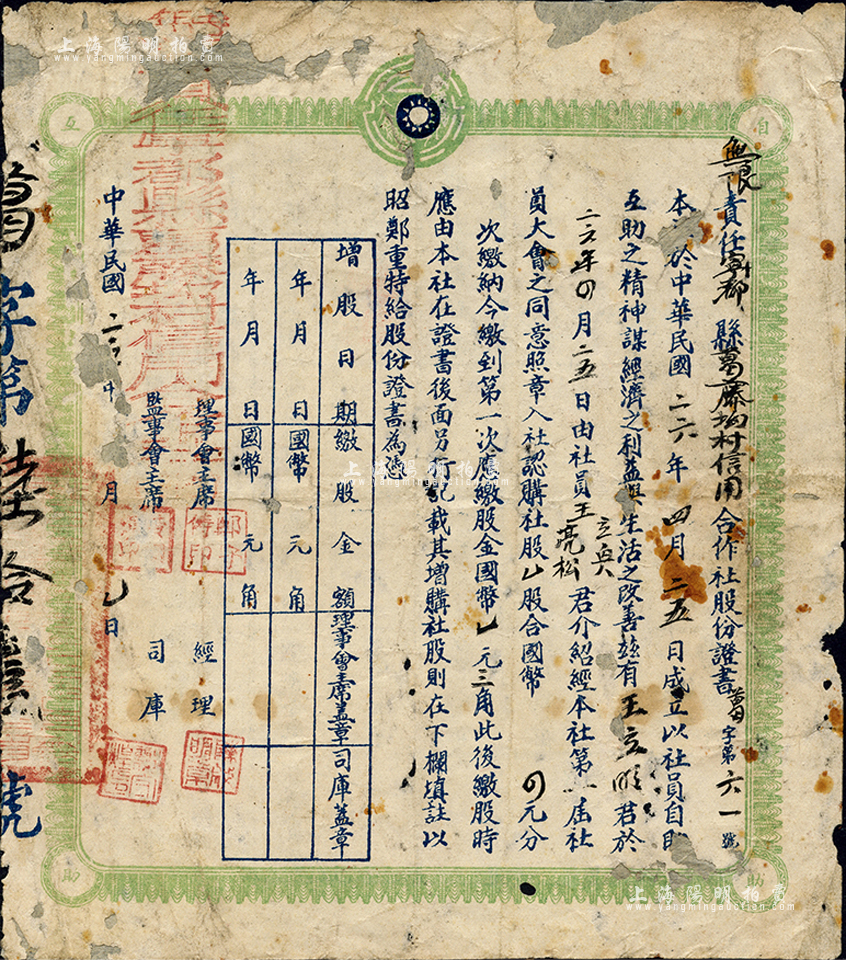 上海陽明拍賣
www.yangmingauction.com
自
互
助
助
無限責任寧都縣葛藤坳村信用合作社股份證書 葛字第六一號
本 於中華民國二六年四月二五日成立以社員自助
互助之精神謀經濟之利益與生活之改善茲有王立 君於
二六年四月二五日由社員王立 亮松君介紹經本社第一屆社
員大會之同意照章入社認購社股 股合國幣 元分
次繳納今繳到第一次應繳股金國幣 元三角此後繳股時
應由本社在證書後面另行記載其增購社股則在下欄填註以
昭鄭重特給股份證書為憑
增股日期 繳股金額 理事會主席蓋章 司庫蓋章
年月日 國幣 元角
年月日 國幣 元角
理事會主席 經理
監事會主席 司庫
中華民國二 年 月 日
字第陸拾 號
上海陽明拍賣
www.yangmingauction.com
上海陽明拍賣
www.yangmingauction.com